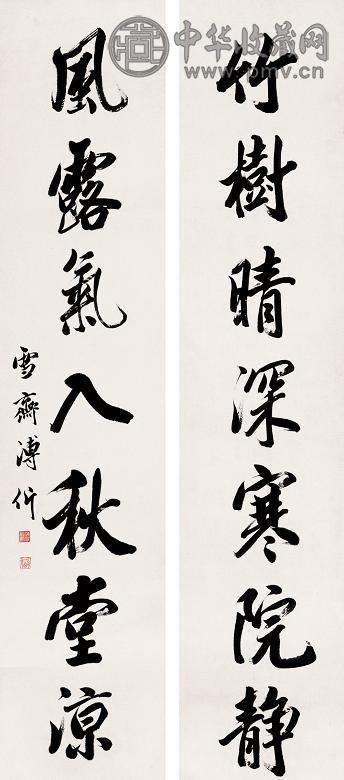 竹樹晴深寒院静
風露氣入秋堂涼
雪齋溥伒
中华收藏网
www.pmv.cn